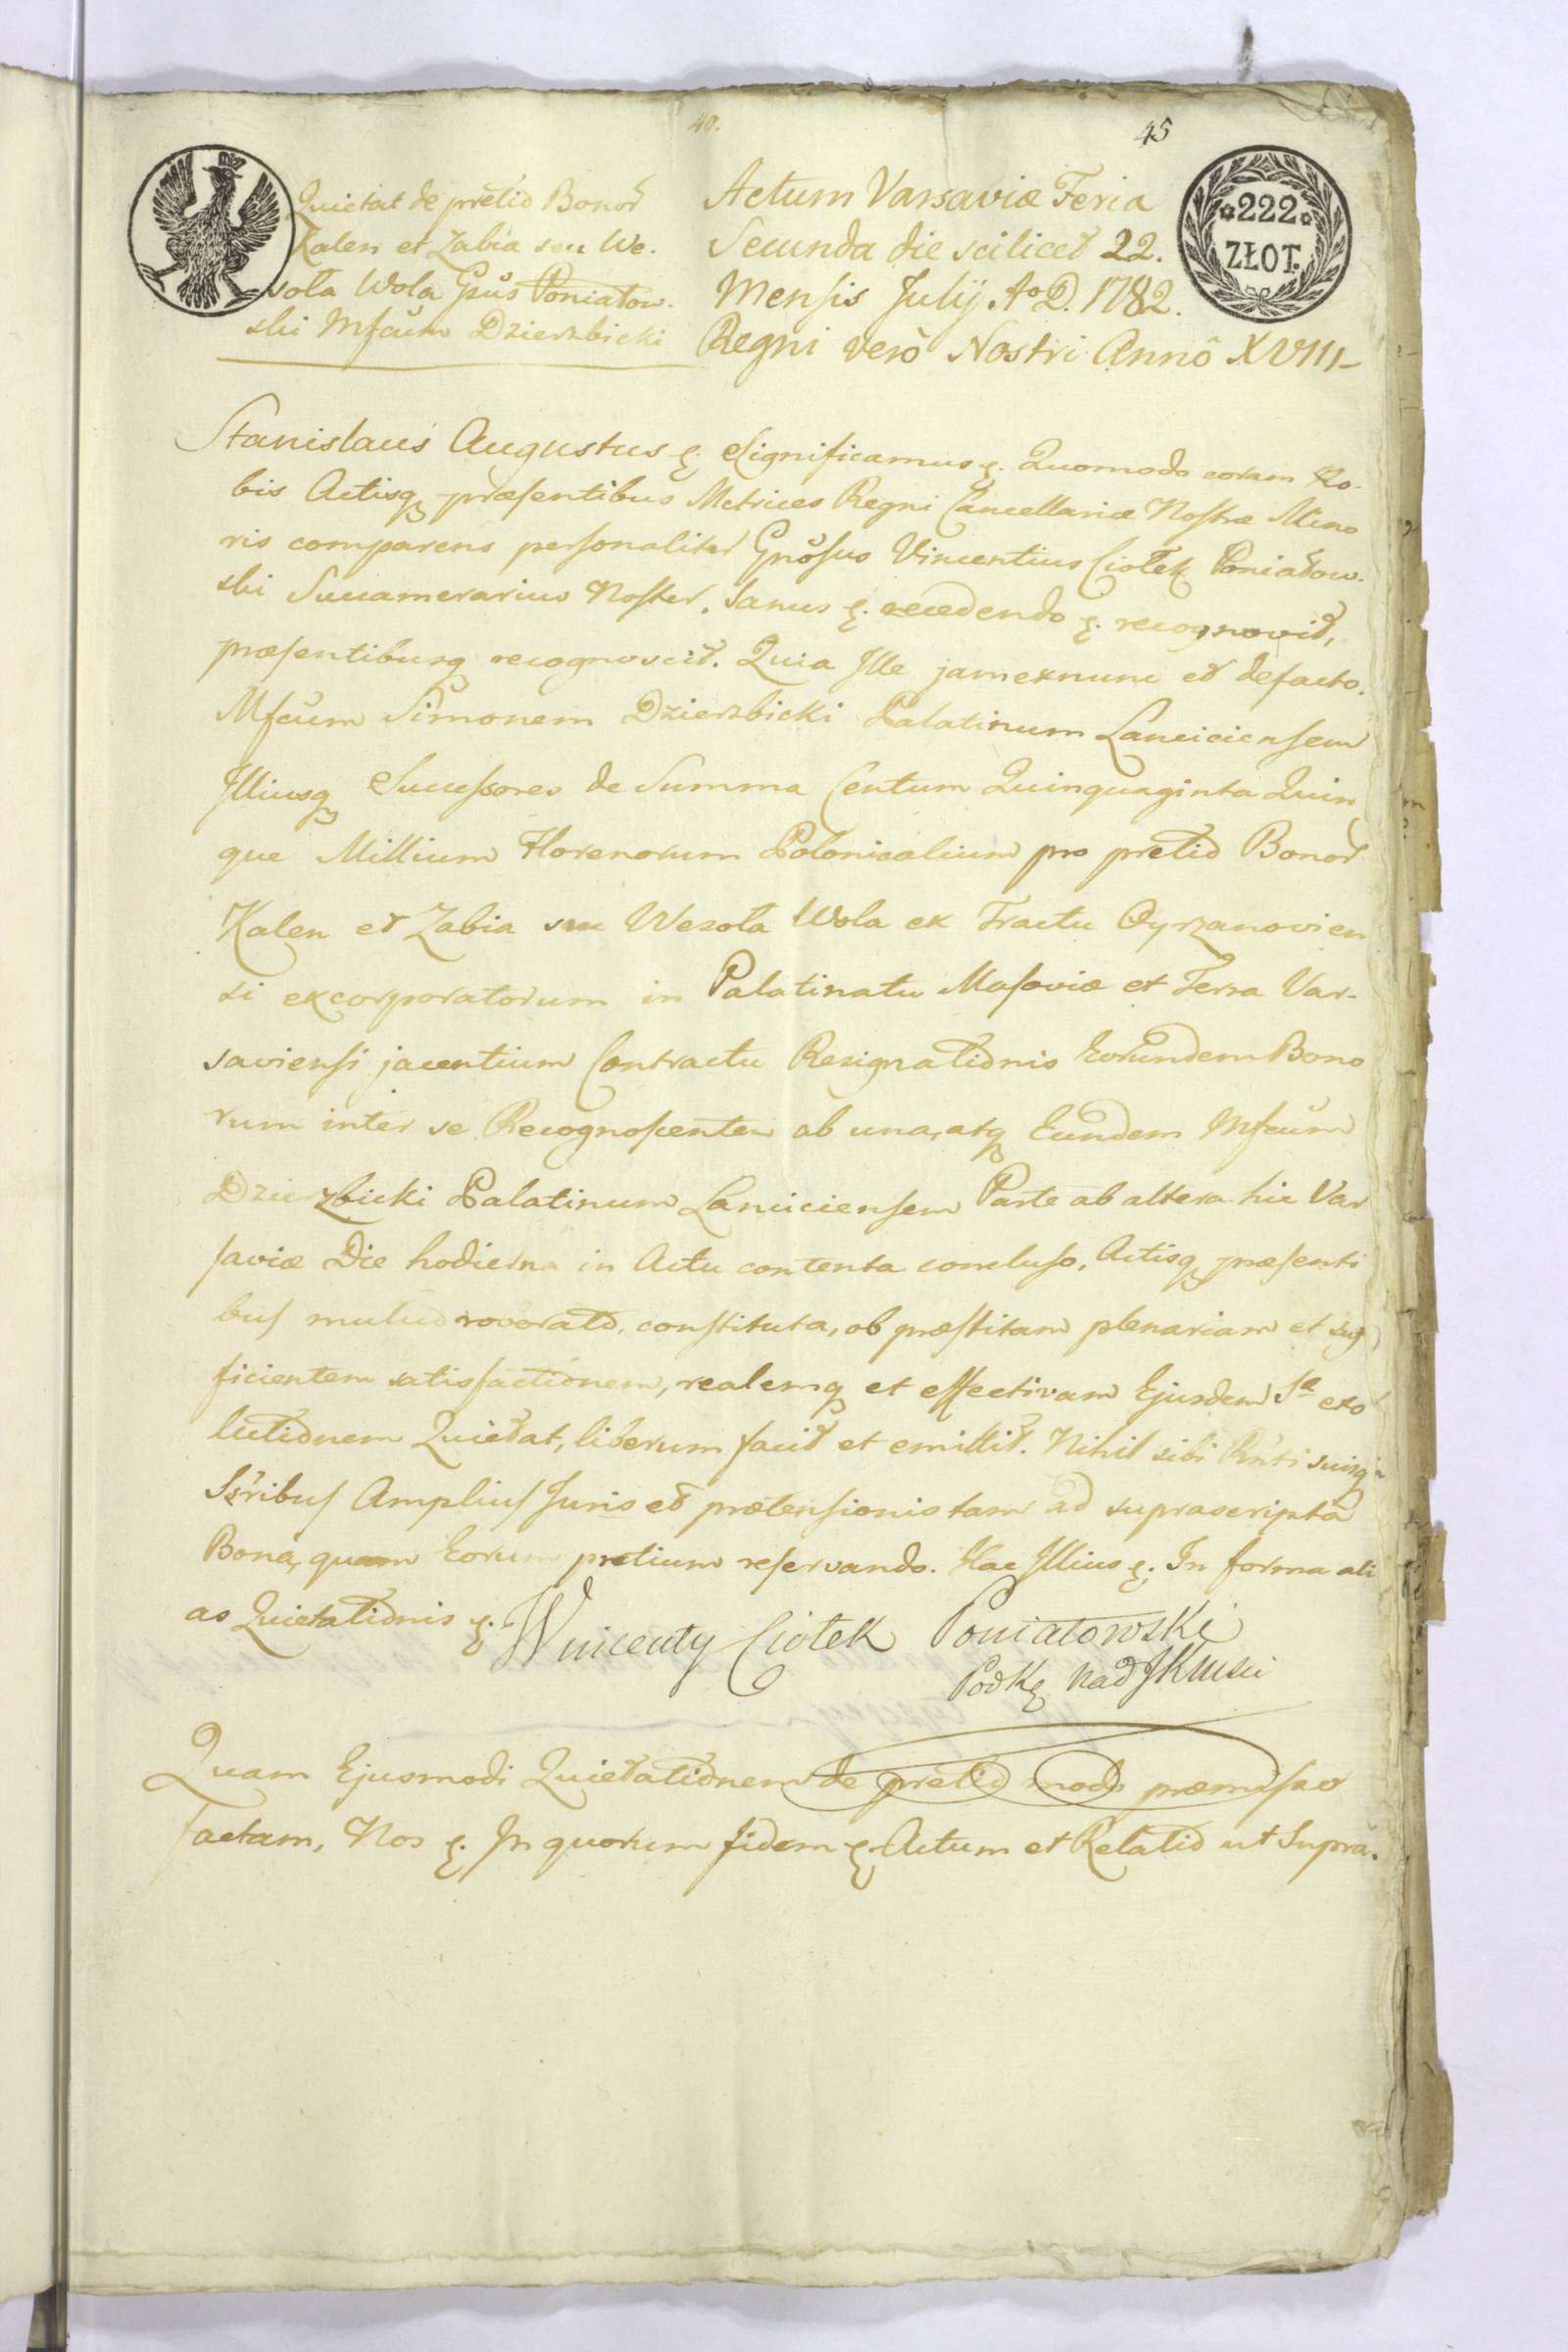 40.
45
Quietat de pretio Bonor̃
Kalen et Zabia seu We-
soła Wola Gn̄us Poniatow-
ski Mfcūm Dzierzbicki
Actum Varsaviæ Feria
Secunda die scilicet 22.
Mensis Julij Aº D. 1782.
Regni verò Nostri Annô XVIII-
✿222✿
ZŁOT.
Stanislaus Augustus &. Significamus &. Quomodo coram No-
bis Actisq præsentibus Metrices Regni Cancellariæ Nostræ Mino
ris comparens personaliter Gnōsus Vincentius Ciołek Poniatow-
ski Succamerarius Noster, Sanus &. recedendo &. recognovit,
præsentibusq recognoscit. Quia Ille jamexnunc et defacto.
Mfcūm Simonem Dzierzbicki Palatinum Lanciciensem
Illiusq Successores de Summa Centum Quinquaginta Quin
que Millium Florenorum Polonicalium pro pretio Bonor̃
Kalen et Zabia seu Wesoła Wola ex Tractu Oyrzanovien
si excorporatorum in Palatinatu Masoviæ et Terra Var-
saviensi jacentium Contractu Resignationis Eorundem Bono
rum inter se Recognoscentem ab una, atq Eundem Mfcūm
Dzierzbicki Palatinum Lanciciensem Parte ab altera hic Var
saviæ Die hodierna in Actu contenta concluso, Actisq præsenti
bus mutuo roborato, constituta, ob præstitam plenariam et suf
ficientem satisfactionem, realemq et effectivam Ejusdem Sæ exo
lutionem Quietat, liberum facit et emittit. Nihil sibi Rñti suisq
Ss̃ribus Amplius Juris et prætensionis tam ad suprascripta
Bona, quam Eorum pretium reservando. Hac Illius &. In forma ali
as Quietationis &.
Wincenty Ciołek Poniatowski
Podk& Nad JKMsci
Quam Ejusmodi Quietationem de pretio modo præmisso
factam, Nos &. In quorum fidem &. Actum et Relatio ut Supra.